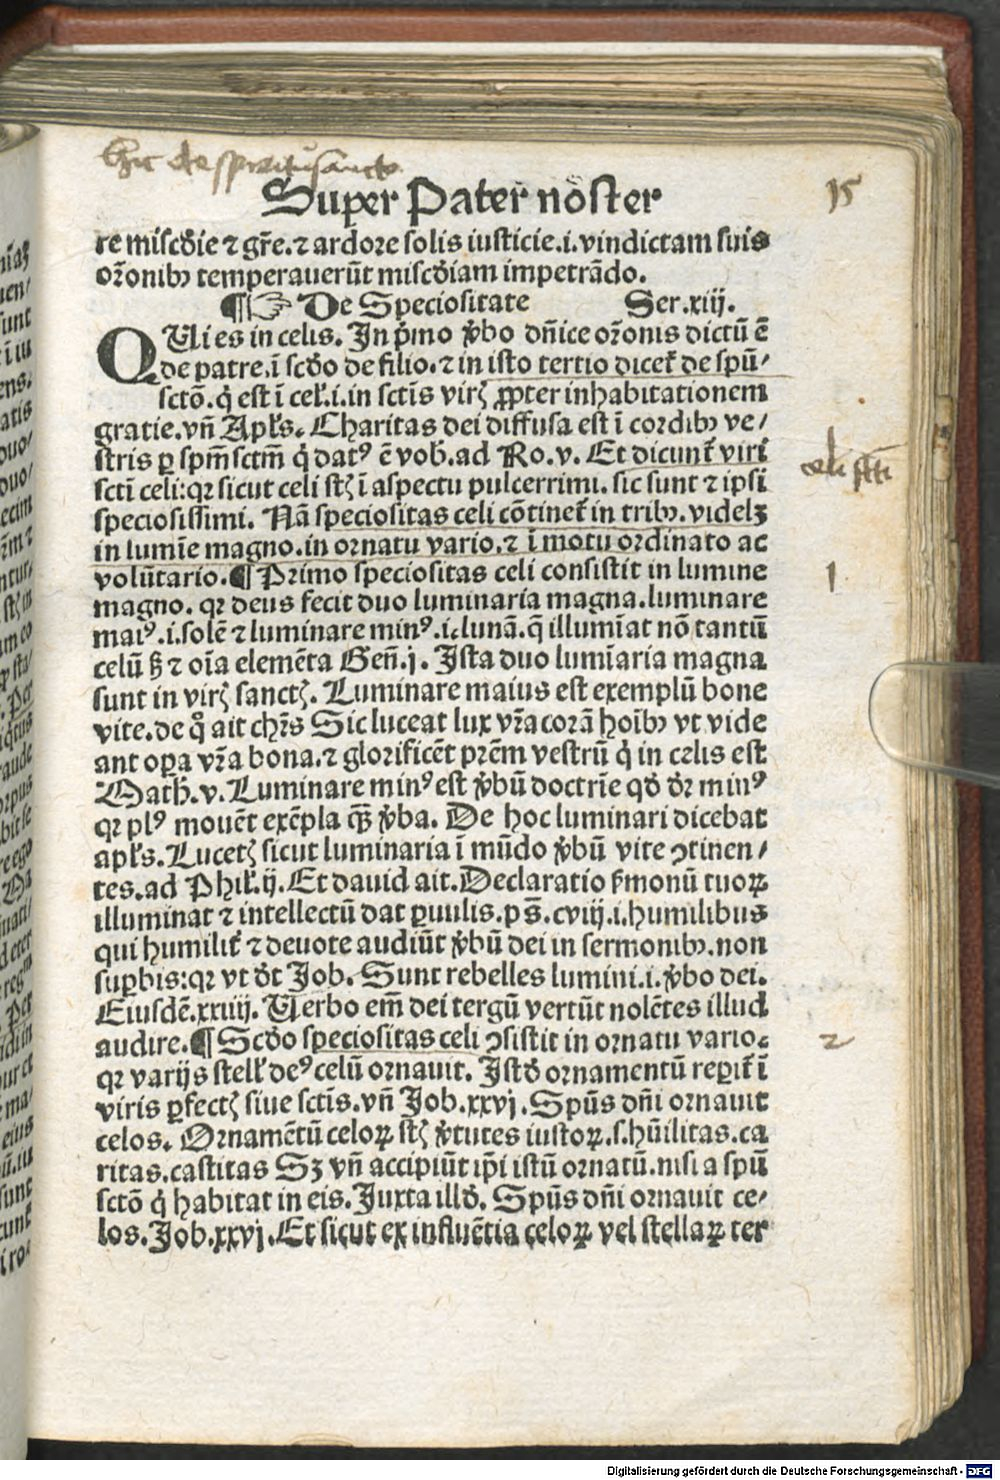 hic de spiritusancto
15
Super Pater noster
re miscd̄ie ⁊ gr̄e.⁊ ardore solis iusticie.i.vindictam suis
or̄onibꝰ temperauerūt miscd̄iam impetrādo.
¶☞ De Speciositate Ser.xiij.
QUi es in celis. In pͥmo v̄bo dn̄ice or̄onis dictū ē
de patre.ī scd̄o de filio.⁊ in isto tertio dicet̄ de spū⸗
sctō.qͥ est ī cel̄.i.in sctīs virꝭ ꝓpter inhabitationem
gratie.vn̄ Apl̄s. Charitas dei diffusa est ī cordibꝫ ve⸗
stris ꝑ spm̄sctm̄ qͥ datꝰ ē vob̄.ad Ro.v. Et dicunt̄ viri
celi sctī
sctī celi:qꝛ sicut celi stꝭ ī aspectu pulcerrimi. sic sunt ⁊ ipsi
speciosissimi. Nā speciositas celi cōtinet̄ in tribꝫ.videlꝫ
in lumīe magno.in ornatu vario.⁊ ī motu ordinato ac
volūtario.¶ Primo speciositas celi consistit in lumine
1
magno. qꝛ deus fecit duo luminaria magna.luminare
maiꝰ.i.solē ⁊ luminare minꝰ.i.lunā.q̄ illumīat nō tantū
celū sꝫ ⁊ oīa elemēta Gen̄.j. Ista duo lumīaria magna
sunt in virꝭ sanctꝭ. Luminare maius est exemplū bone
vite.de qͦ ait chr̄s Sic luceat lux vr̄a corā hoībꝫ vt vide
ant oꝑa vr̄a bona.⁊ glorificēt pr̄em vestrū qͥ in celis est
Math̄.v. Luminare minꝰ est v̄bū doctrīe qd̄ dꝛ̄ minꝰ
qꝛ plꝰ mouēt exēpla qꝫ̄ v̄ba. De hoc luminari dicebat
apl̄s. Lucetꝭ sicut luminaria ī mūdo v̄bū vite ꝯtinen⸗
tes.ad Phil̄.ij. Et dauid ait. Declaratio s̄monū tuoꝝ
illuminat ⁊ intellectū dat ꝑuulis.ps̄.cviij.i.humilibus
qui humilit̄ ⁊ deuote audiūt v̄bū dei in sermonibꝫ.non
suꝑbis:qꝛ vt d̄t Job. Sunt rebelles lumini.i.v̄bo dei.
Eiusdē.xxiiij. Uerbo em̄ dei tergū vertūt nolētes illud
audire.¶ Scd̄o speciositas celi ꝯsistit in ornatu vario.
2
qꝛ varijs stell̄ deꝰ celū ornauit. Istd̄ ornamentū reꝑit̄ ī
viris ꝑfectꝭ siue sctīs.vn̄ Job.xxvj. Spūs dn̄i ornauit
celos. Ornamētū celoꝝ stꝭ v̄tutes iustoꝝ.s.hūilitas.ca
ritas.castitas Sꝫ vn̄ accipiūt ip̄i istū ornatū.nisi a spū
sctō qͥ habitat in eis. Juxta illd̄. Spūs dn̄i ornauit ce⸗
los. Job.xxvj. Et sicut ex influētia celoꝝ vel stellaꝝ ter
Digitalisierung gefördert durch die Deutsche Forschungsgemeinschaft - DFG